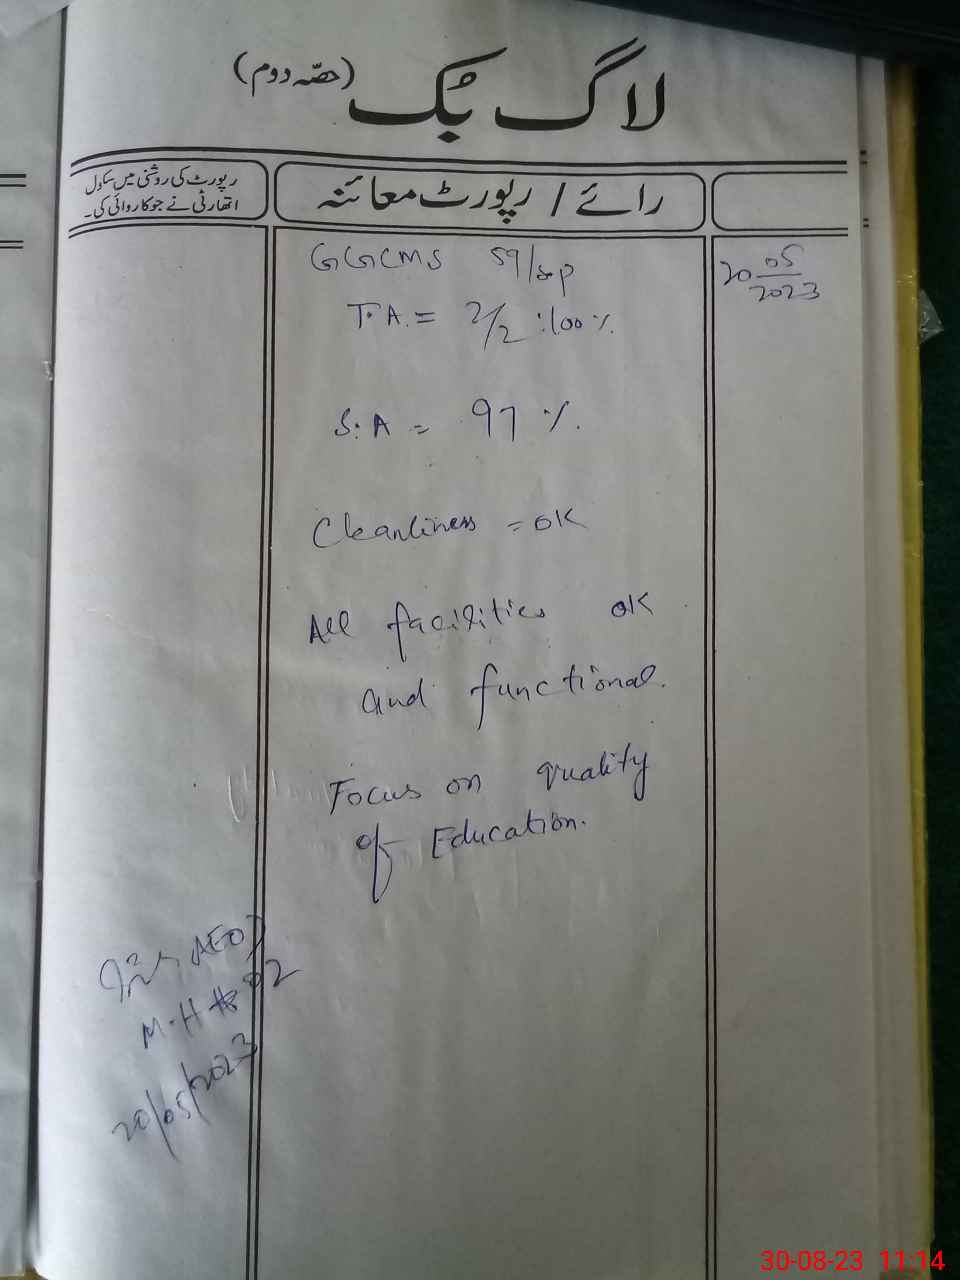 لاگ بُک (حصّہ دوم)
رائے / رپورٹ معائنہ
رپورٹ کی روشنی میں سکول
اتھارٹی نے جو کاروائی کی۔
20 05
2023
GGCMS 59/SP
T.A. = 2/2 :100 %
S.A = 97 %
Cleanliness = OK
All facilities OK
and functional.
Focus on quality
of Education.
AEO
M.H # 02
20/05/2023
30-08-23 11:14